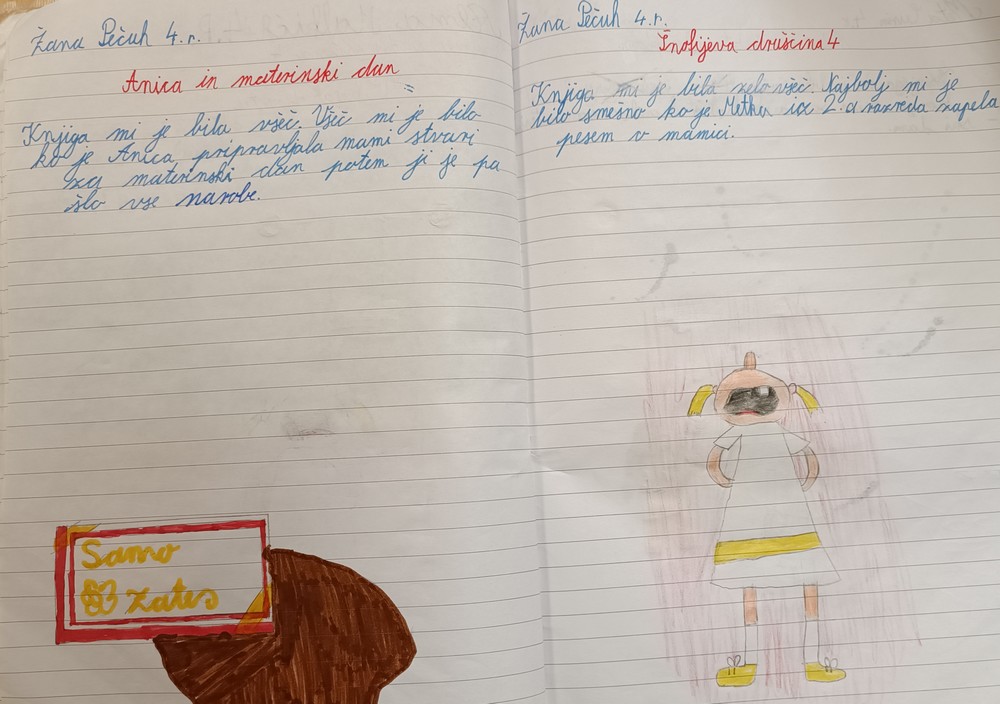 Žana Pečuh 4. r.
Anica in materinski dan
Knjiga mi je bila všeč. Všeč mi je bilo
ko je Anica pripravljala mami stvari
za materinski dan potem ji je pa
šlo vse narobe.
Samo
zates
Žana Pečuh 4. r.
Knofijeva druščina 4
Knjiga mi je bila zelo všeč. Najbolj mi je
bilo smešno ko je Metka iz 2. a razreda zapela
pesem o mamici.